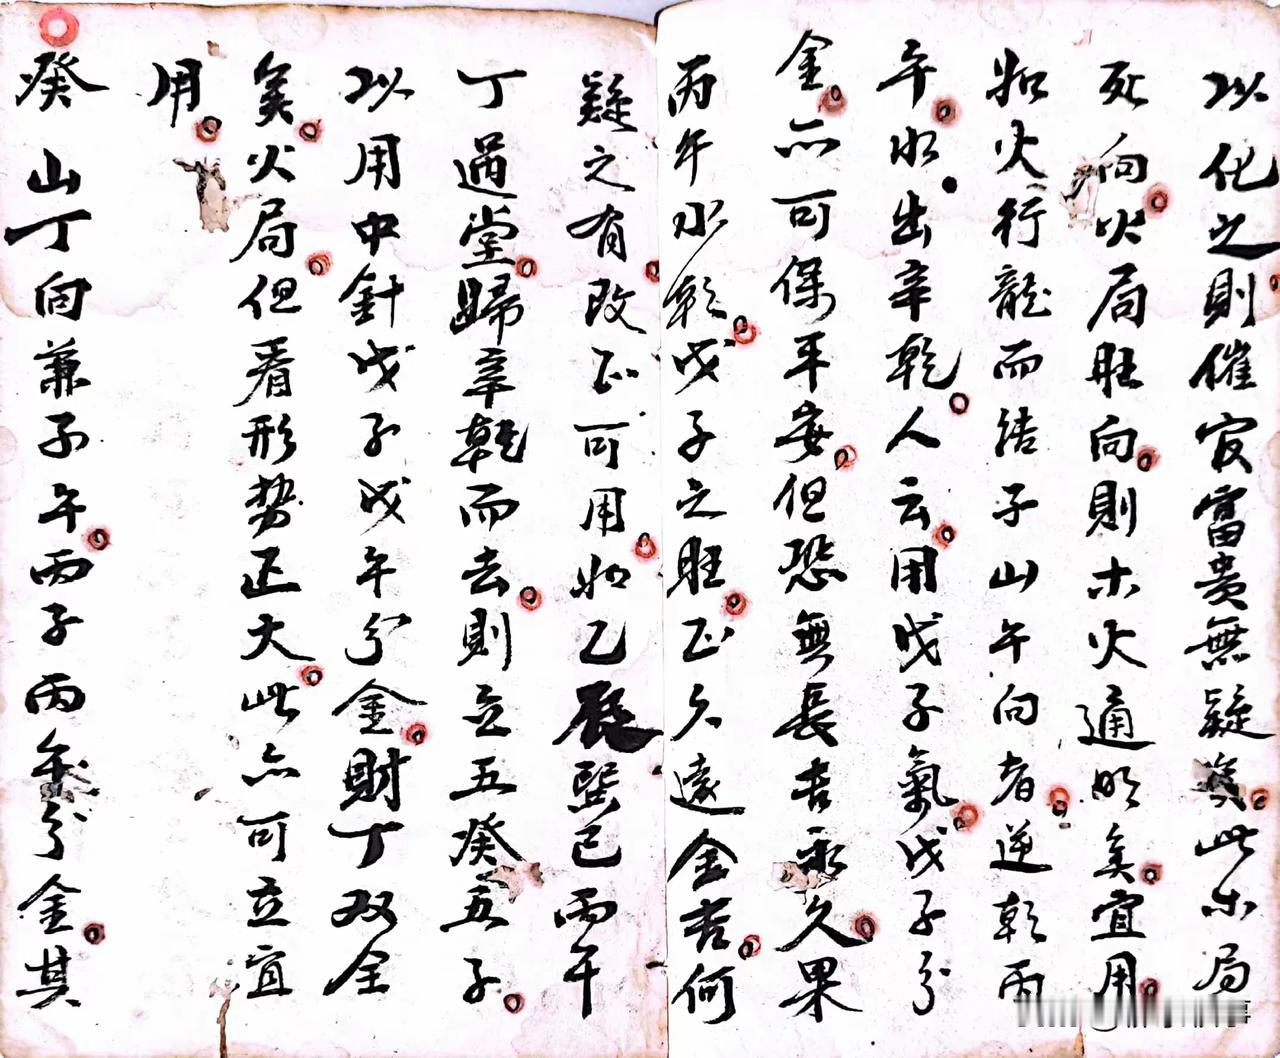 以化之則催官富貴無疑矣此木局
死向火局旺向則木火通明矣宜用
如火行龍而結子山午向者逆乾丙
午水出辛乾人云用戊子氣戊子分
金亦可保平安但恐無長吉永久果
丙午水乾戊子之旺正久遠全吉何
疑之有改正可用如乙辰巽巳丙午
丁過堂歸辛乾而去則立五癸五子
以用中針戊子戊午分金財丁双全
矣火局但看形势正大此亦可立宜
用
癸山丁向兼子午丙子丙午分金其